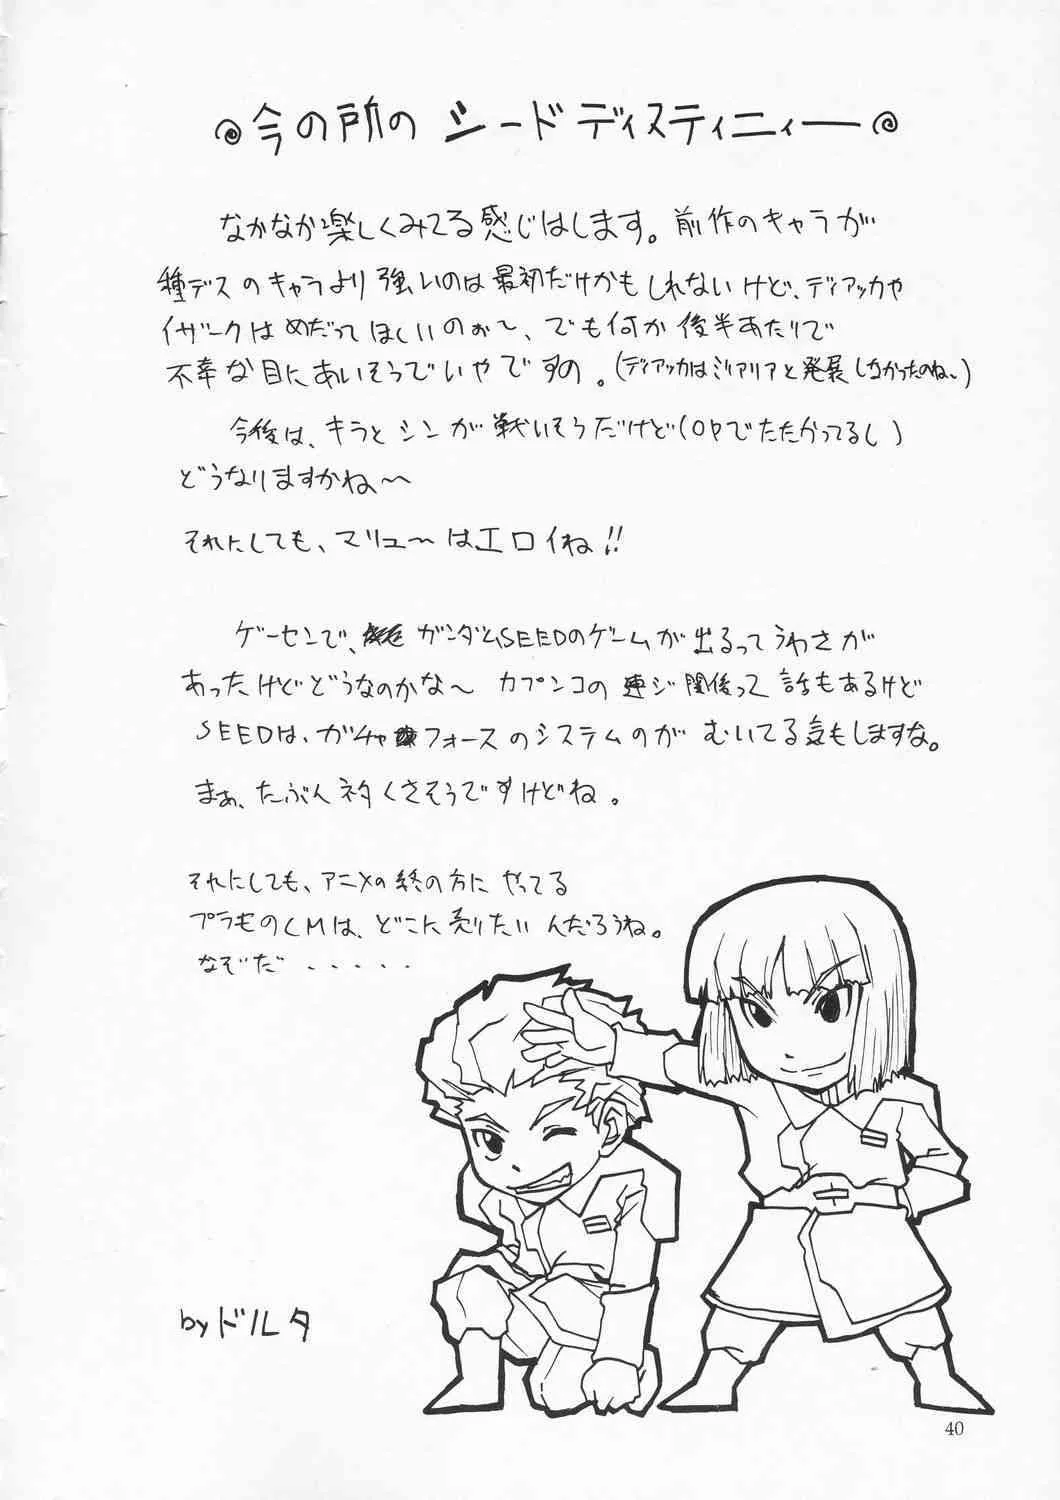 今の所の シードディスティニィー
なかなか楽しくみてる感じはします。前作のキャラが
種デスのキャラより強いのは最初だけかもしれないけど、ディアッカや
イザークはめだってほしいのぉ〜、でも何か後半あたりで
不幸な目にあいそうでいやですの。(ディアッカはミリアリアと発展しなかったのね、)
今後は、キラとシンが戦いそうだけど(OPでたたかってるし)
どうなりますかね〜
それにしても、マリュ〜はエロイね!!
ゲーセンで、ガンダムSEEDのゲームが出るってうわさが
あったけどどうなのかな〜 カプンコの連ジ関係って話もあるけど
SEEDは、ガチャフォースのシステムのが むいてる気もしますな。
まぁ、たぶんネタくさそうですけどね。
それにしても、アニメの終の方にやってる
プラモのCMは、どこに売りたいんだろうね。
なぞだ ・・・・・
by ドルタ
40